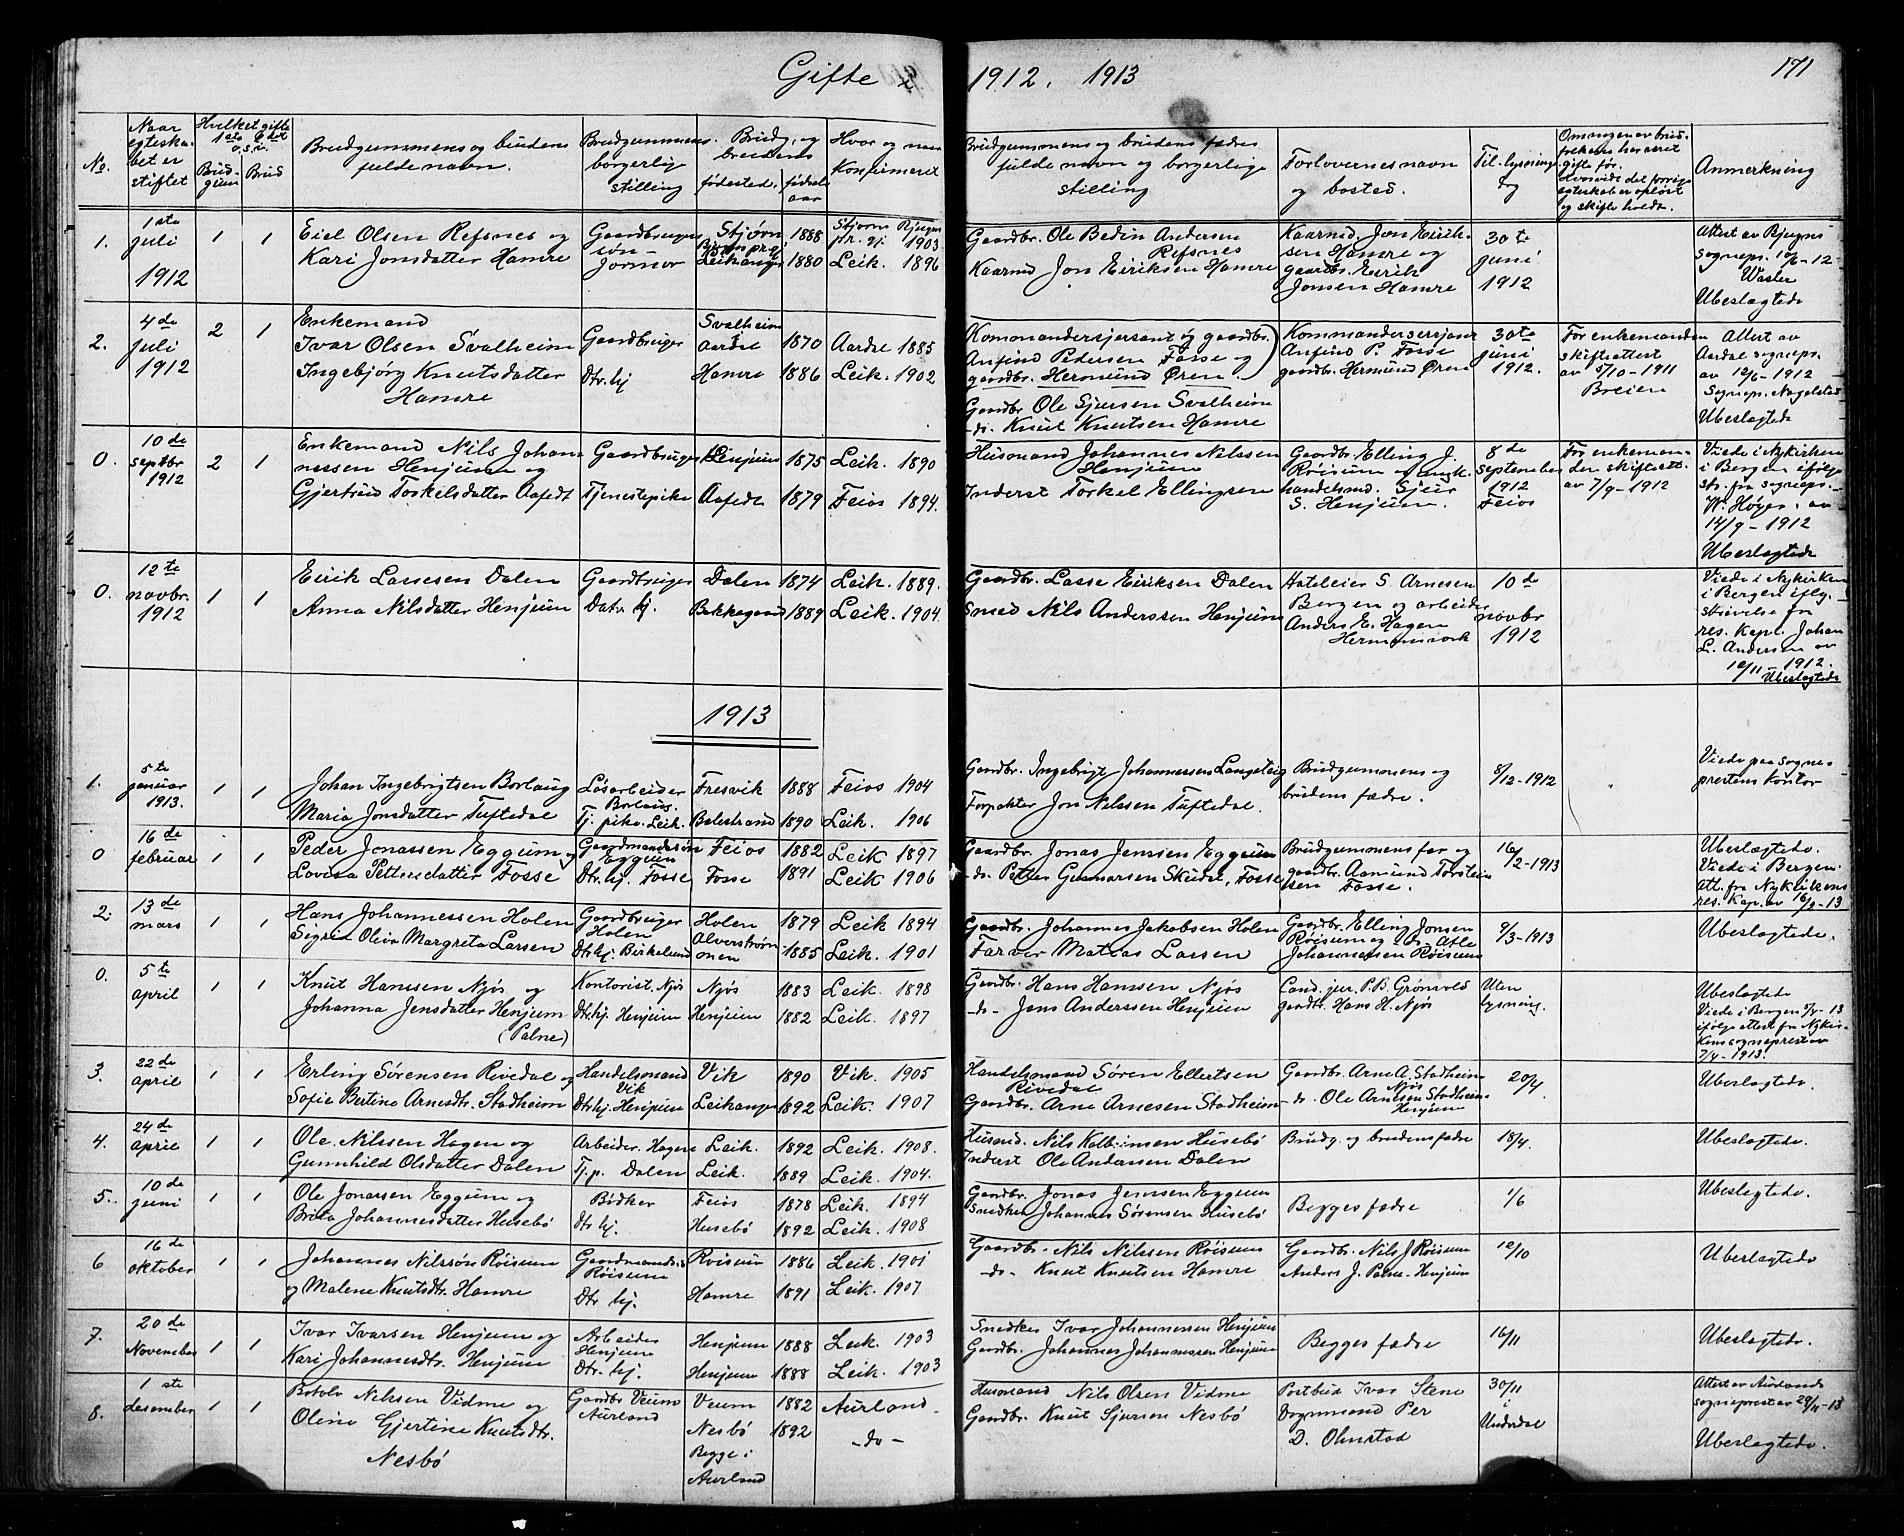 Gifte 1912. 1913
171
No.
Naar egteska- bet er stiftet
Hvilket gifte 1ste 2det o.s.v.
Brud- gum
Brud
Brudgummens og brudens fulde navn.
Brudgummens borgerlige stilling
Brudg. og brudens
fødested.
fødsels aar
Hvor og naar Konfirmeret
Brudgummens og brudens fædres fulde navn og borgerlige stilling
Forlovernes navn og bosted.
Til-lysnings dag
Om nogen av brud- folkene har været gifte før. Hvorvidt det forrige egteskab er opløst og skifte holdt.
Anmerkning
1. 1ste juli 1912 1 1
Eiel Olsen Refsnes og
Kari Jonsdatter Hamre
Gaardbruger
Jormor
Stjørn 1888 Stjørn Rjugn pr. gj. 1903
Leikanger 1880 Leik. 1896
Gaardbr. Ole Bedin Andersen Refsnes
Kaarmd Jon Eiriksen Hamre
Kaarmd. Jon Eirik- sen Hamre og gaardbr. Eirik Jonsen Hamre
30te juni 1912
Attest av Rjugns sognepr. 10/6-12
Ubeslagtede
2. 4de juli 1912 2 1
Enkemand
Ivar Olsen Svalheim
Ingebjørg Knutsdatter
Hamre
Gaardbruger
Dtr. hj
Svalheim Aardal 1870 Aardal 1885
Hamre 1886 Leik. 1902
Kommandersjersant og gaardbr.
Anfind Pedersen Fosse og
gaardbr. Hermund Øren.
Gaardbr. Ole Sjursen Svalheim
do. Knut Knutsen Hamre
Kommandersersjant
Anfind P. Fosse
gaardbr. Hermund Øren
30te juni 1912.
For enkemanden skifteattest av 5/10-1911 Breien
Attest av Aardal sognepr. av 12/6-1912 Sognepr. Nagelsted
Ubeslagtede
0. 10de septbr 1912 2 1
Enkemand Nils Johan-
nessen Henjum og
Gjertrud Torkelsdatter Aafedt
Gaardbruger Henjum 1875 Leik. 1890
Tjenestepike Aafedt 1879 Feios 1894.
Husmand Johannes Nilssen Henjum
Inderst Torkel Ellingsen
Gaardbr. Elling J. Røisum og handelsmd. Sjur S. Henjum.
8de september 1912 Feios
For enkeman- den skifteatt. av 7/9-1912
Viede i Nykirken i Bergen ifølge skr. fra sognepr. W. Høyer. av 14/9-1912
Ubeslagtede
0. 12te novbr. 1912 1 1
Eirik Lassesen Dalen
Anna Nilsdatter Henjum
Gaardbruger Dalen 1874 Leik. 1889.
Datr. hj. Bakkegaard 1889 Leik. 1904.
Gaardbr. Lasse Eiriksen Dalen
Smed Nils Anderssen Henjum
Hoteleier S. Arnesen
Bergen og arbeider
Anders E. Hagen
Hermansverk
10de novbr 1912
Viede i Nykirken i Bergen iflg. skrivelse fra res. Kapl. Johan L. Andersen av 12/11-1912.
Ubeslagtede
1913
1. 5te januar 1913. 1 1
Johan Ingebrigtsen Borlaug
Maria Jonsdatter Tuftedal
Løsarbeider Borlaug. Fresvik 1888 Feios 1904
Tj. pike Leik. Balestrand 1890 Leik. 1906
Gaardbr. Ingebrigt Johannessen Langeteig
Forpakter Jon Nilssen Tuftedal.
Brudgummens og
brudens fædre.
8/12-1912
Viede paa sogne- prestens kontor
0 16de februar 1 1
Peder Jonassen Eggum og
Lovisa Pettersdatter Fosse
Gaardmandssøn Eggum Feios 1882 Leik 1897
Dtr. hj. Fosse Fosse 1891 Leik 1906
Gaardbr. Jonas Jenssen Eggum
do. Petter Gunnarsen Skudal, Fosse
Brudgummens far og gaardbr. Aamund Torstein- sen Fosse.
16/2-1913
Ubeslagtede. Viede i Bergen. Att. fra Nykirkens res. Kap. av 16/2-13
2. 13de mars 1 1
Hans Johannessen Holen
Sigrid Oliva Margreta Larsen
Gaardbruger Holen Holen 1879 Leik 1894
Dtr. hj. Birkelund Alverstrøm- men 1885 Leik. 1901
Gaardbr. Johannes Jakobsen Holen
Farver Matias Larsen
Gaardbr. Elling Jonsen Røisum og do. Atle Johannessen Røisum
9/3-1913
Ubeslagtede.
0. 5te april 1 1
Knut Hanssen Njøs og
Johanna Jensdatter Henjum
(Palne)
Kontorist. Njøs Njøs 1883 Leik. 1898
Dtr. hj. Henjum Henjum 1882 Leik. 1897
Gaardbr. Hans Hanssen Njøs
-do- Jens Anderssen Henjum
Cand. jur. P. B. Grønvold
gardbr. Hans H. Njøs
Uten lysning.
Ubeslagtede
Viede i Bergen 5/4-13 ifølge attest fra Nykir- kens sogneprest av 7/4-1913.
3. 22de april 1 1
Erling Sørensen Rivedal og
Sofie Bertine Arnesdtr. Stadheim
Handelsmand Vik Vik 1890 Vik. 1905
Dtr. hj. Henjum Leikanger 1892 Leik. 1907
Handelsmand Søren Ellertsen Rivedal
Gaardbr. Arne Arnesen Stadheim
Gaardbr. Arne A. Stadheim Njøs
do. Ole Arnesen Stadheim Henjum
20/4
Ubeslagtede.
4. 24de april 1 1
Ole Nilssen Hagen og
Gunnhild Olsdatter Dalen
Arbeider. Hagen Leik. 1892 Leik. 1908.
Tj. p. Dalen Leik. 1889 Leik. 1904.
Husmd. Nils Kolbeinsen Husebø
Inderst Ole Anderssen Dalen
Brudg. og brudens fædre
18/4.
Ubeslagtede.
5. 10de juni 1 1
Ole Jonassen Eggum og
Brita Johannesdatter Husebø
Bødker Feios 1878 Leik. 1894
Dtr. hj. Husebø 1892 Leik. 1908
Gaardbr. Jonas Jenssen Eggum
Snedker Johannes Sørensen Husebø
Begges fædre
1/6
Ubeslagtede.
6 16de oktober 1 1
Johannes Nilssøn Røisum
og Malene Knutsdtr. Hamre
Gaardmands.s Røisum Røisum 1886 Leik. 1901
Dtr. hj. Hamre 1891 Leik. 1907
Gaardbr. Nils Nilssen Røisum
-do- Knut Knutsen Hamre
Gaardbr. Nils J. Røisum
Anders J. Palne-Henjum
12/10
Ubeslagtede
7. 20de November 1 1
Ivar Ivarsen Henjum og
Kari Johannesdtr. Henjum
Arbeider Henjum Henjum 1888 Leik. 1903
Dtr. hj. Henjum 1888 Leik. 1903
Snedker Ivar Johannessen Henjum
Gaardbr. Johannes Johannessen Henjum
Begges fædre
16/11
Ubeslagtede.
8. 1ste desember 1 1
Botolv Nilssen Vidme og
Oline Gjertine Knutsdtr.
Nesbø
Gaardbr Veum Aurland Veum 1882 Aurland-
Nesbø 1892 -do-
Begge i Aurland
Husmand Nils Olsen Vidme
Gaardbr. Knut Sjursen Nesbø
Postbud Ivar Stene
Dagmand Per
D. Ohnstad
30/11 i Undredal
Attest av Aurlands sogneprest av 29/11-13
Ubeslagtede.